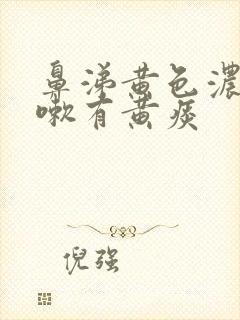 鼻涕黄色浓
嗽有黄痰
倪强